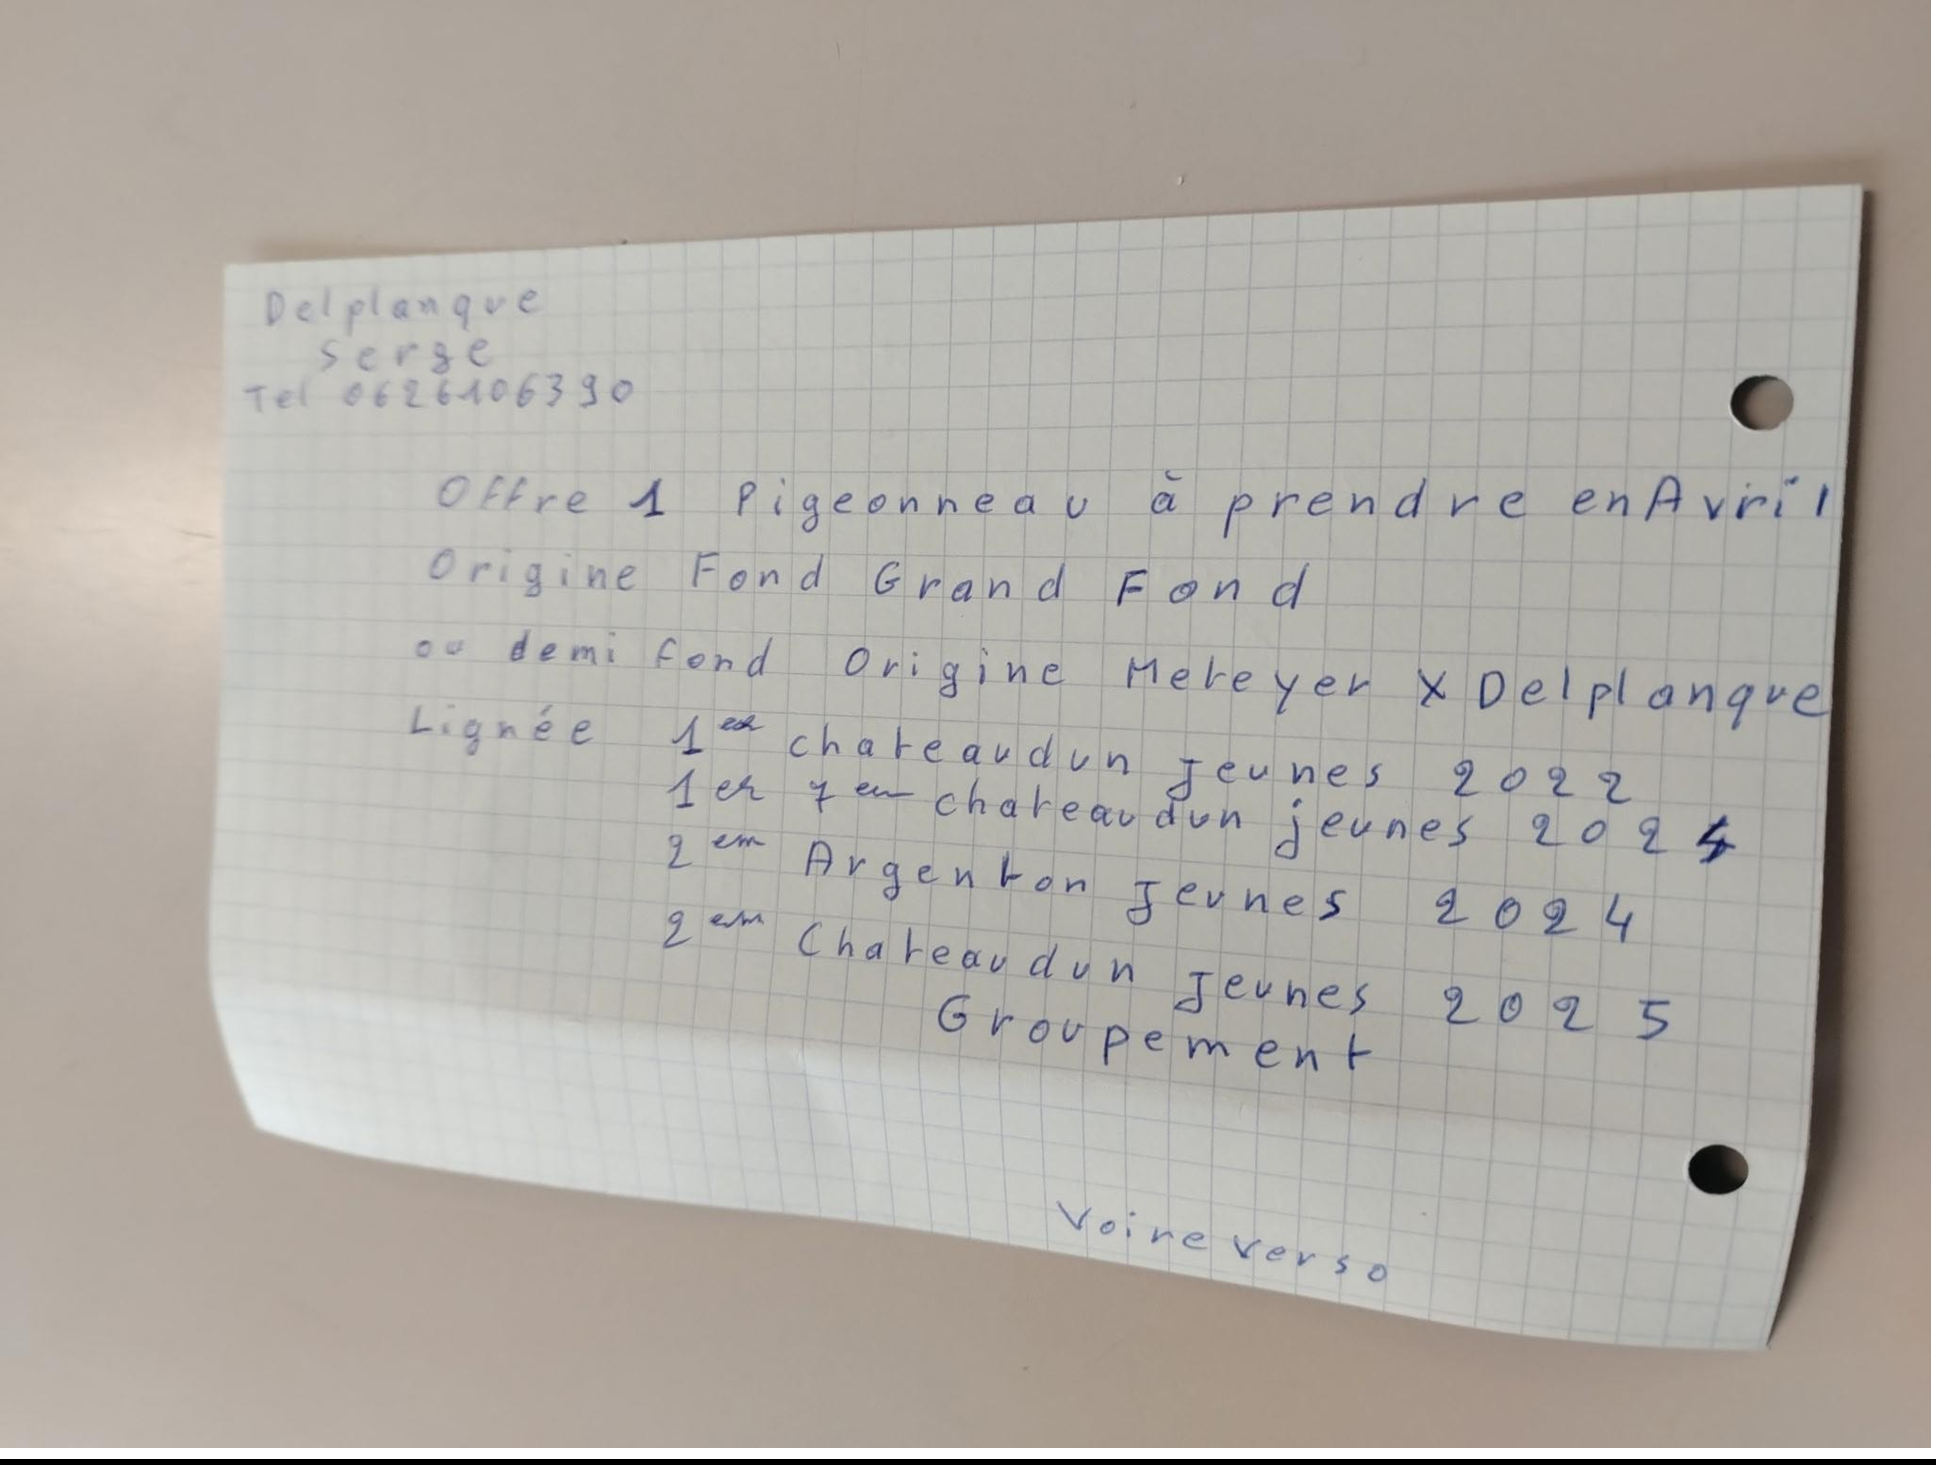 Delplanque
Serge
Tel 0626106390
Offre 1 Pigeonneau à prendre en Avril
Origine Fond Grand Fond
ou demi fond Origine Meteyer X Delplanque
Lignée 1er chateaudun Jeunes 2022
1er 7em chateaudun jeunes 2024
2em Argenton Jeunes 2024
2em Chateaudun Jeunes 2025
Groupement
Voire verso